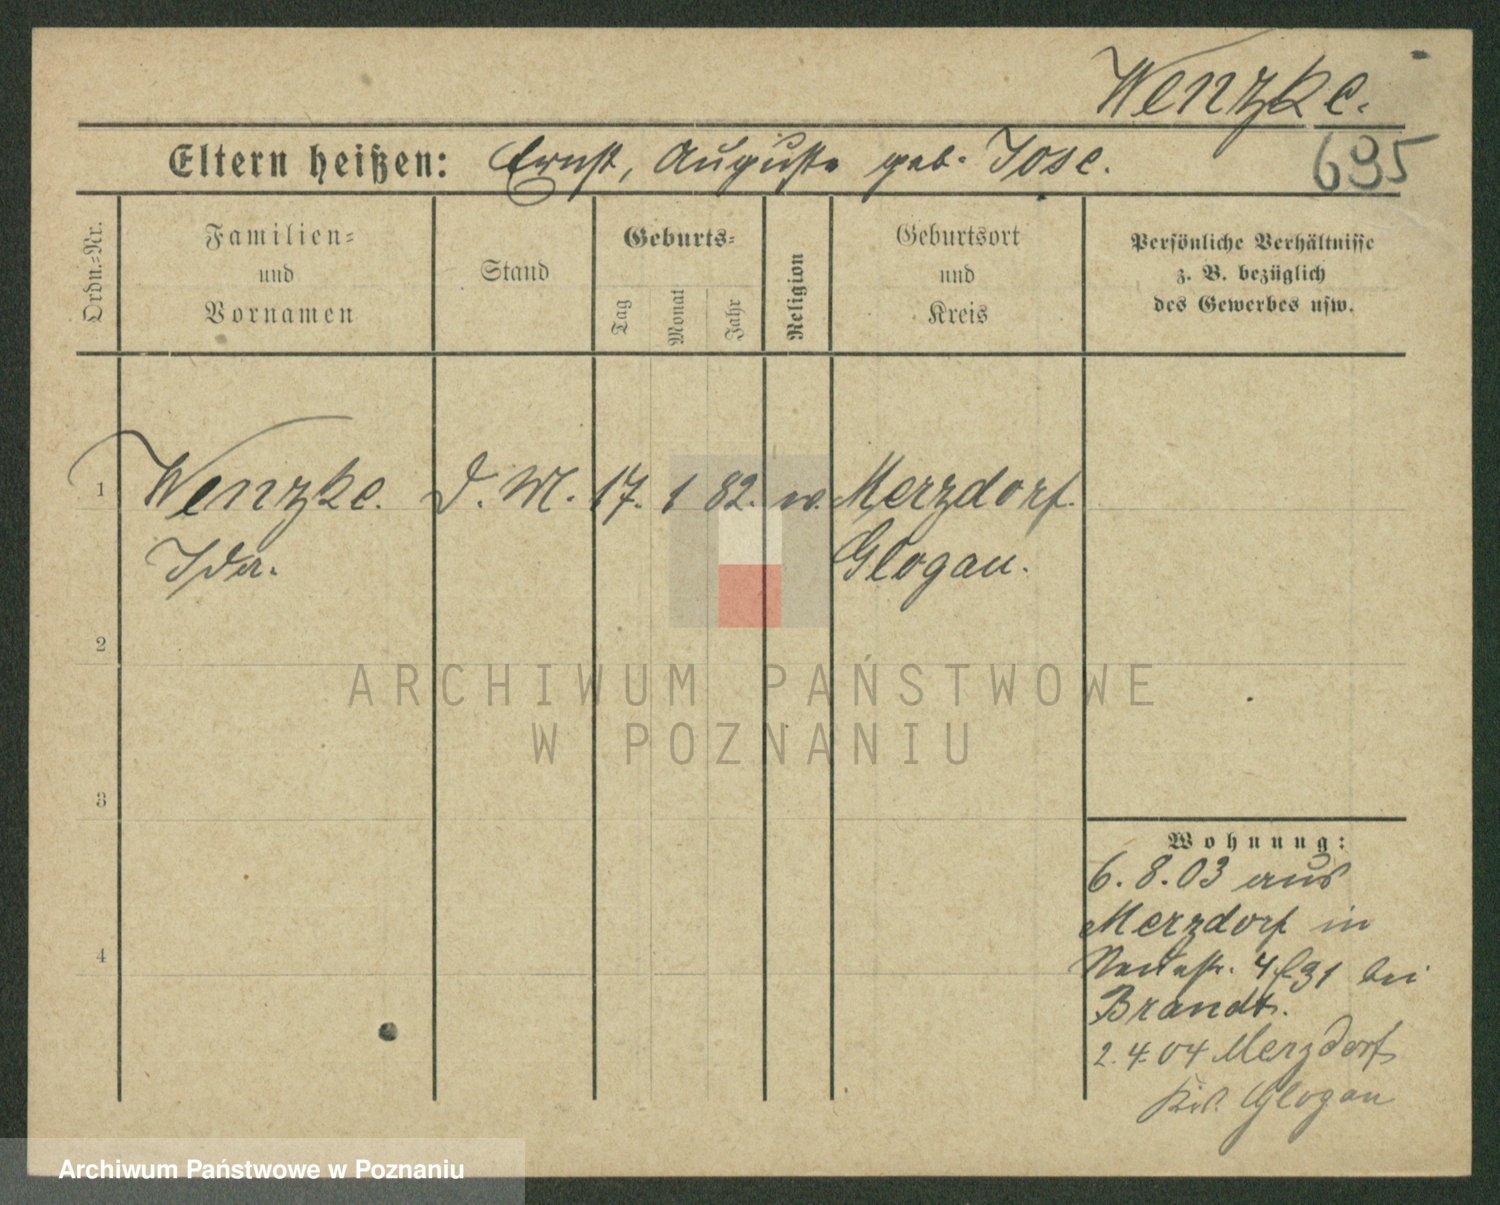 Wenzke.
695
Eltern heißen: Ernst, Auguste geb. Jose.
Ordn.-Nr.
Familien-
und
Vornamen
Stand
Geburts-
Tag
Monat
Jahr
Religion
Geburtsort
und
Kreis
Persönliche Verhältnisse
z. B. bezüglich
des Gewerbes usw.
1 Wenzke. D. M. 17. 1 82. Merzdorf.
Ida. Glogau.
2
ARCHIWUM PAŃSTWOWE
W POZNANIU
3
4
Wohnung:
6. 8. 03 aus
Merzdorf in
bei
Brandt.
2. 4. 04 Merzdorf
Glogau
Archiwum Państwowe w Poznaniu